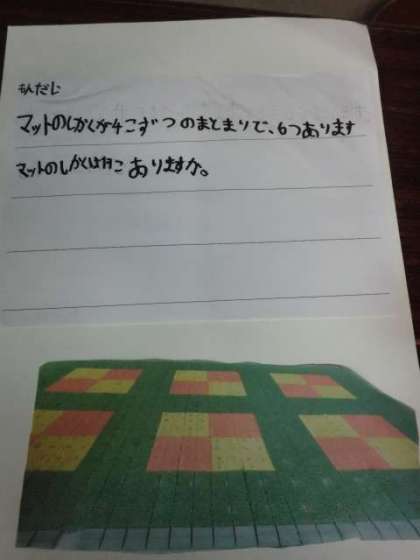 もんだい
マットのしかくが4こずつのまとまりで、6つあります
マットのしかくは何こありますか。